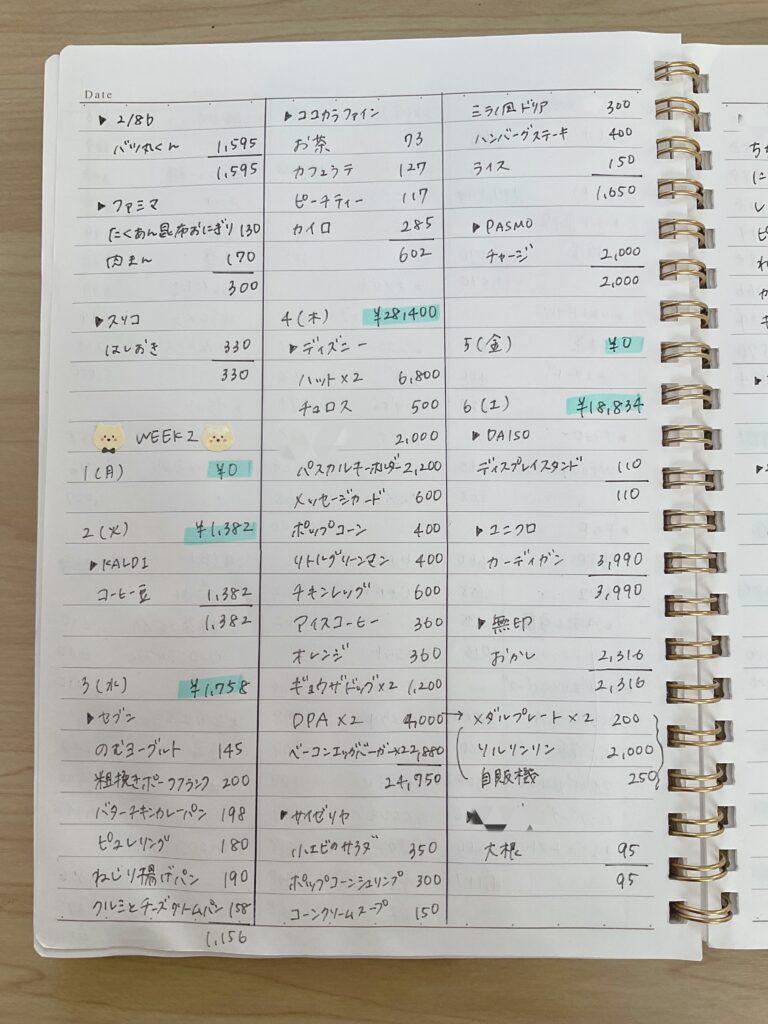 Date
▶ 2/86
バツ丸くん 1,595
1,595
▶ ファミマ
たくあん昆布おにぎり 130
肉まん 170
300
▶ スリコ
はしおき 330
330
WEEK 2
1(月) ¥0
2(火) ¥1,382
▶ KALDI
コーヒー豆 1,382
1,382
3(水) ¥1,758
▶ セブン
のむヨーグルト 145
粗挽きポークフランク 200
バターチキンカレーパン 198
ピュレリング 180
ねじり揚げパン 190
クルミとチーズクリームパン 158
1,156
▶ ココカラファイン
お茶 73
カフェラテ 127
ピーチティー 117
カイロ 285
602
4(木) ¥28,400
▶ ディズニー
ハット×2 6,800
チュロス 500
2,000
パスカルキーホルダー 2,200
メッセージカード 600
ポップコーン 400
リトルグリーンマン 400
チキンレッグ 600
アイスコーヒー 360
オレンジ 360
ギョウザドッグ×2 1,200
DPA×2 4,000→
ベーコンエッグバーガー×2 2,880
24,750
▶ サイゼリヤ
小エビのサラダ 350
ポップコーンシュリンプ 300
コーンクリームスープ 150
ミラノ風ドリア 300
ハンバーグステーキ 400
ライス 150
1,650
▶ PASMO
チャージ 2,000
2,000
5(金) ¥0
6(土) ¥18,834
▶ DAISO
ディスプレイスタンド 110
110
▶ ユニクロ
カーディガン 3,990
3,990
▶ 無印
おかし 2,316
2,316
メダルプレート×2 200
リルリンリン 2,000
自販機 250
▶
大根 95
95